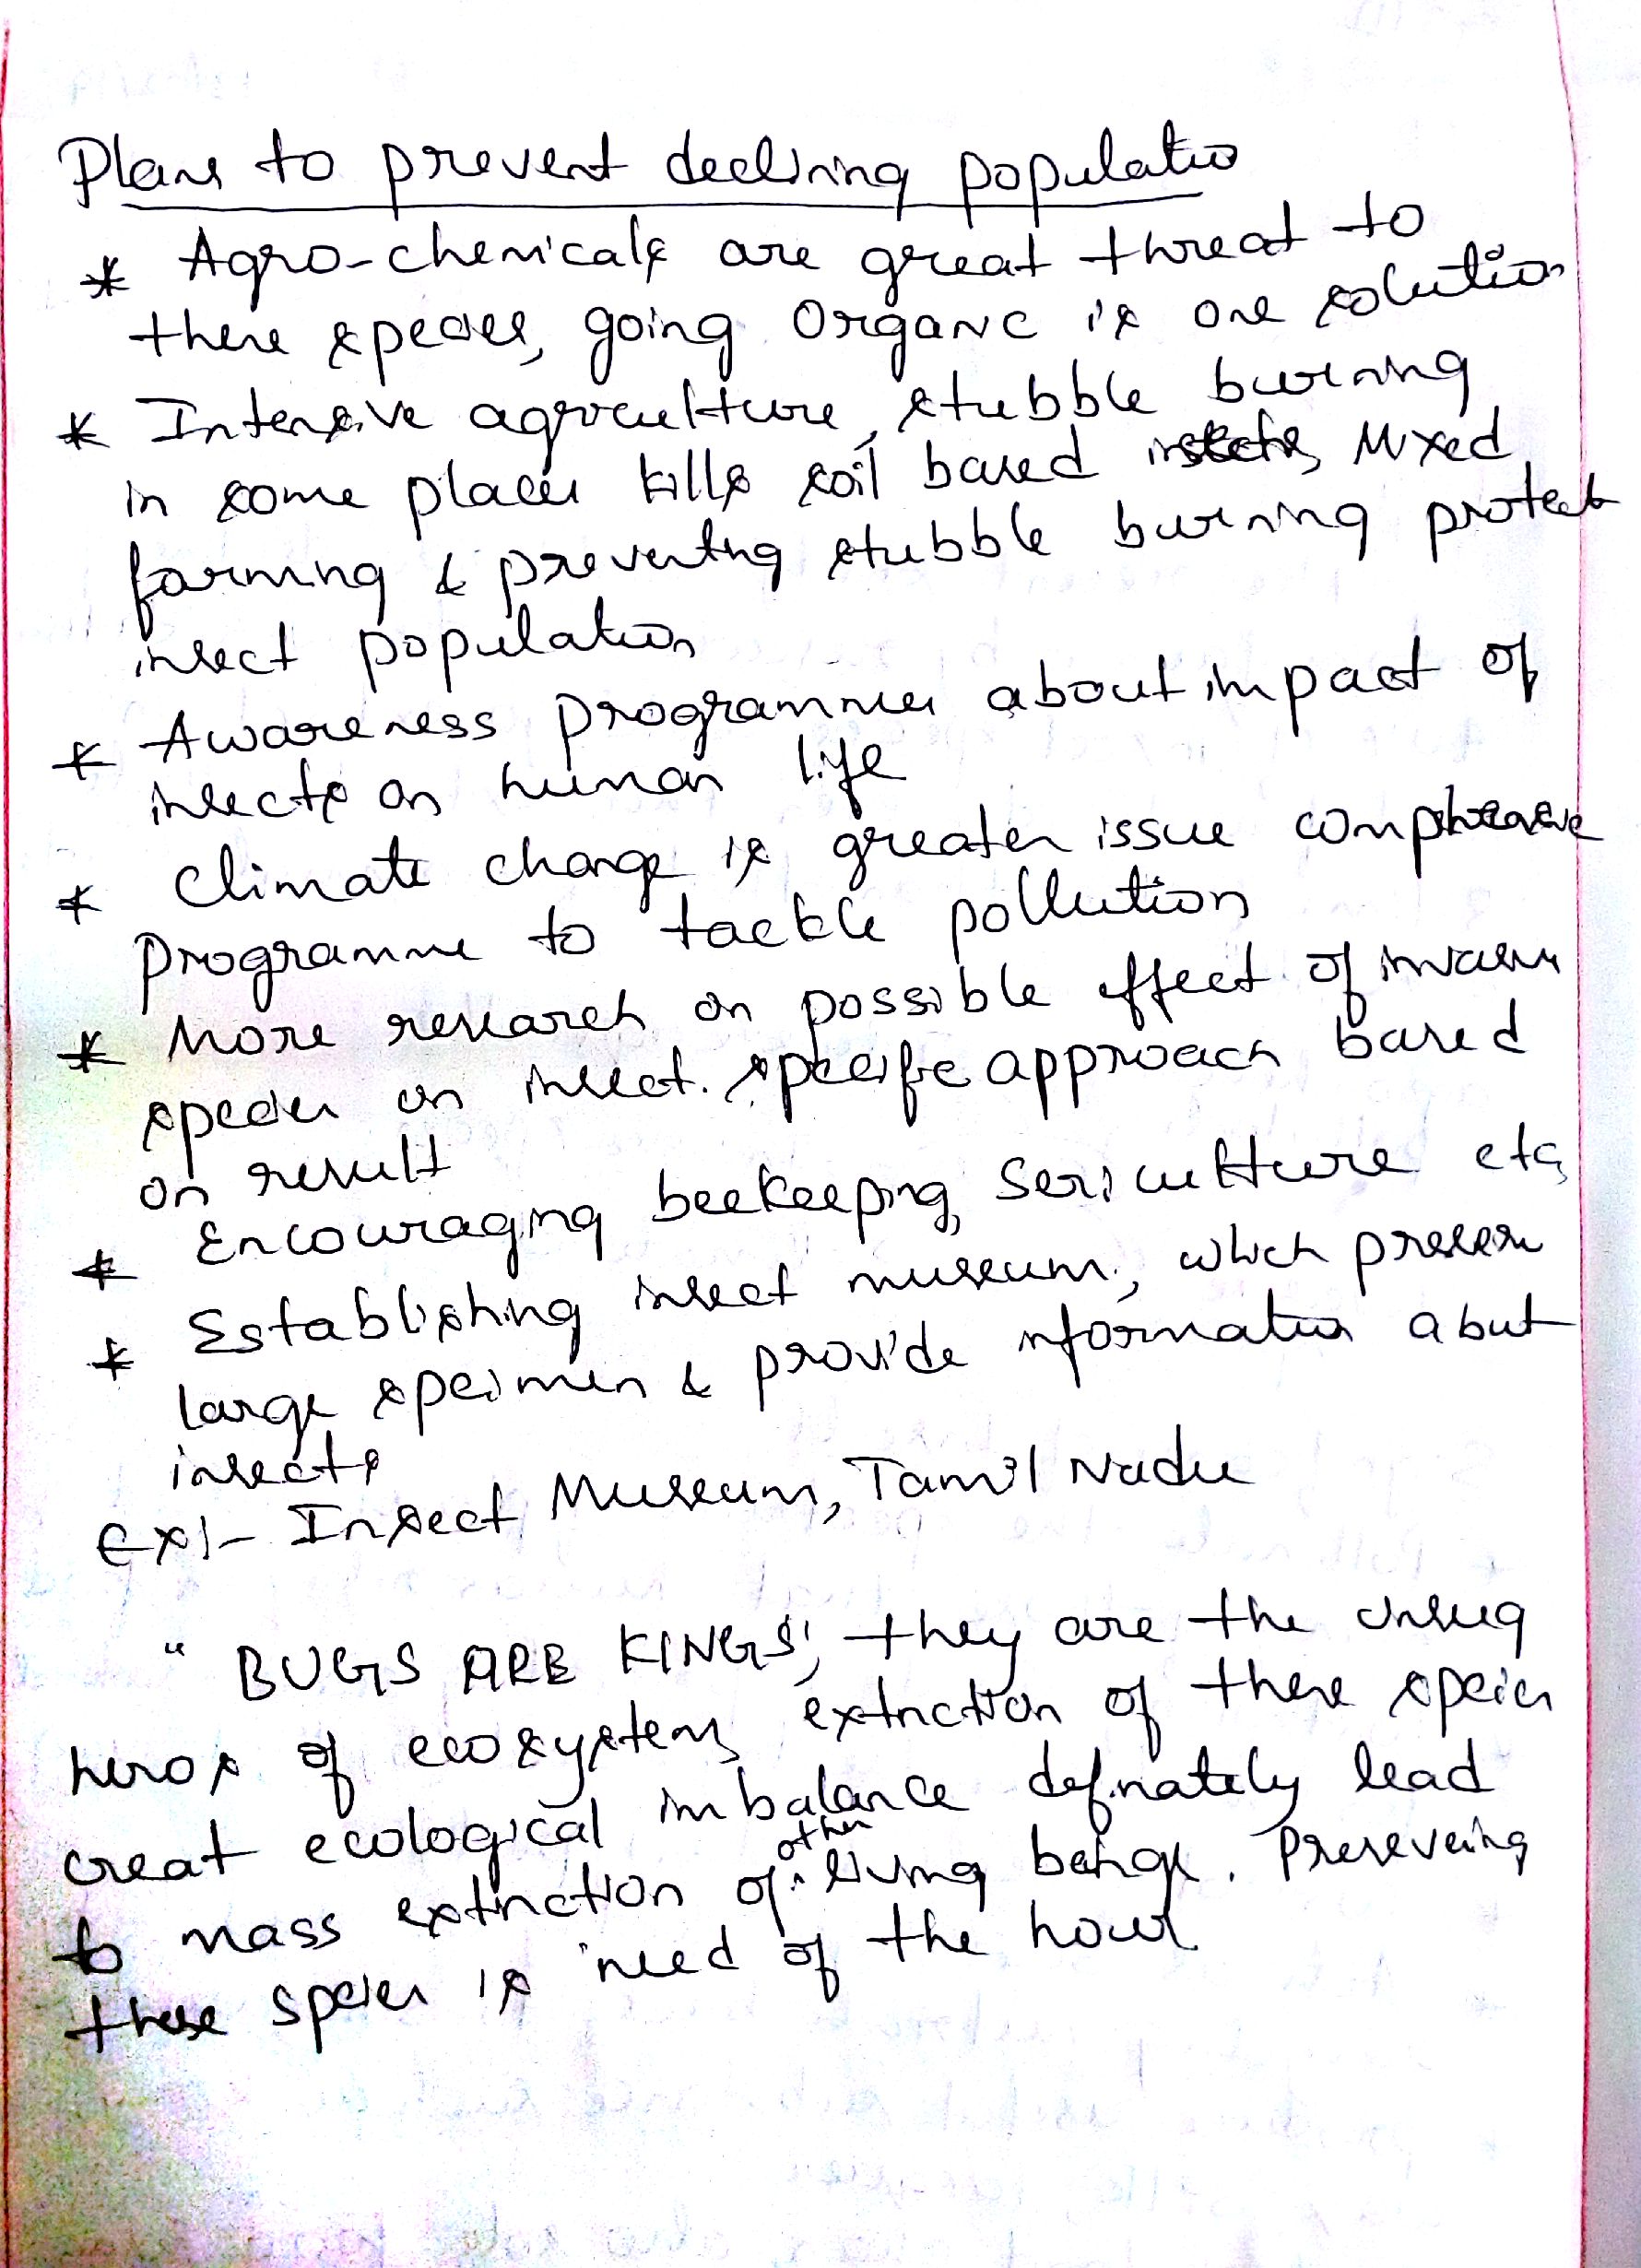 Plans to prevent declining populatio
* Agro-chemicals are great threat to
these species, going Organic is one solution
* Intensive agriculture, stubble burning
in some places kills soil based insects, Mixed
farming & preventing stubble burning protect
insect population
* Awareness programmes about impact of
insects on human life
* Climate change is greater issue
programme to tackle pollution
* More research on possible effect of invasive
species on insect. specific approach based
on result
* Encouraging beekeeping, Sericulture etc,
* Establishing insect museum, which preserve
large specimen & provide information abut
insects
Ex:- Insect Museum, Tamil Nadu
" BUGS ARE KINGS', they are the unsug
heros of ecosystem, extinction of these species
creat ecological imbalance definately lead
to mass extinction of other living beings. Preserveing
these species is need of the hour